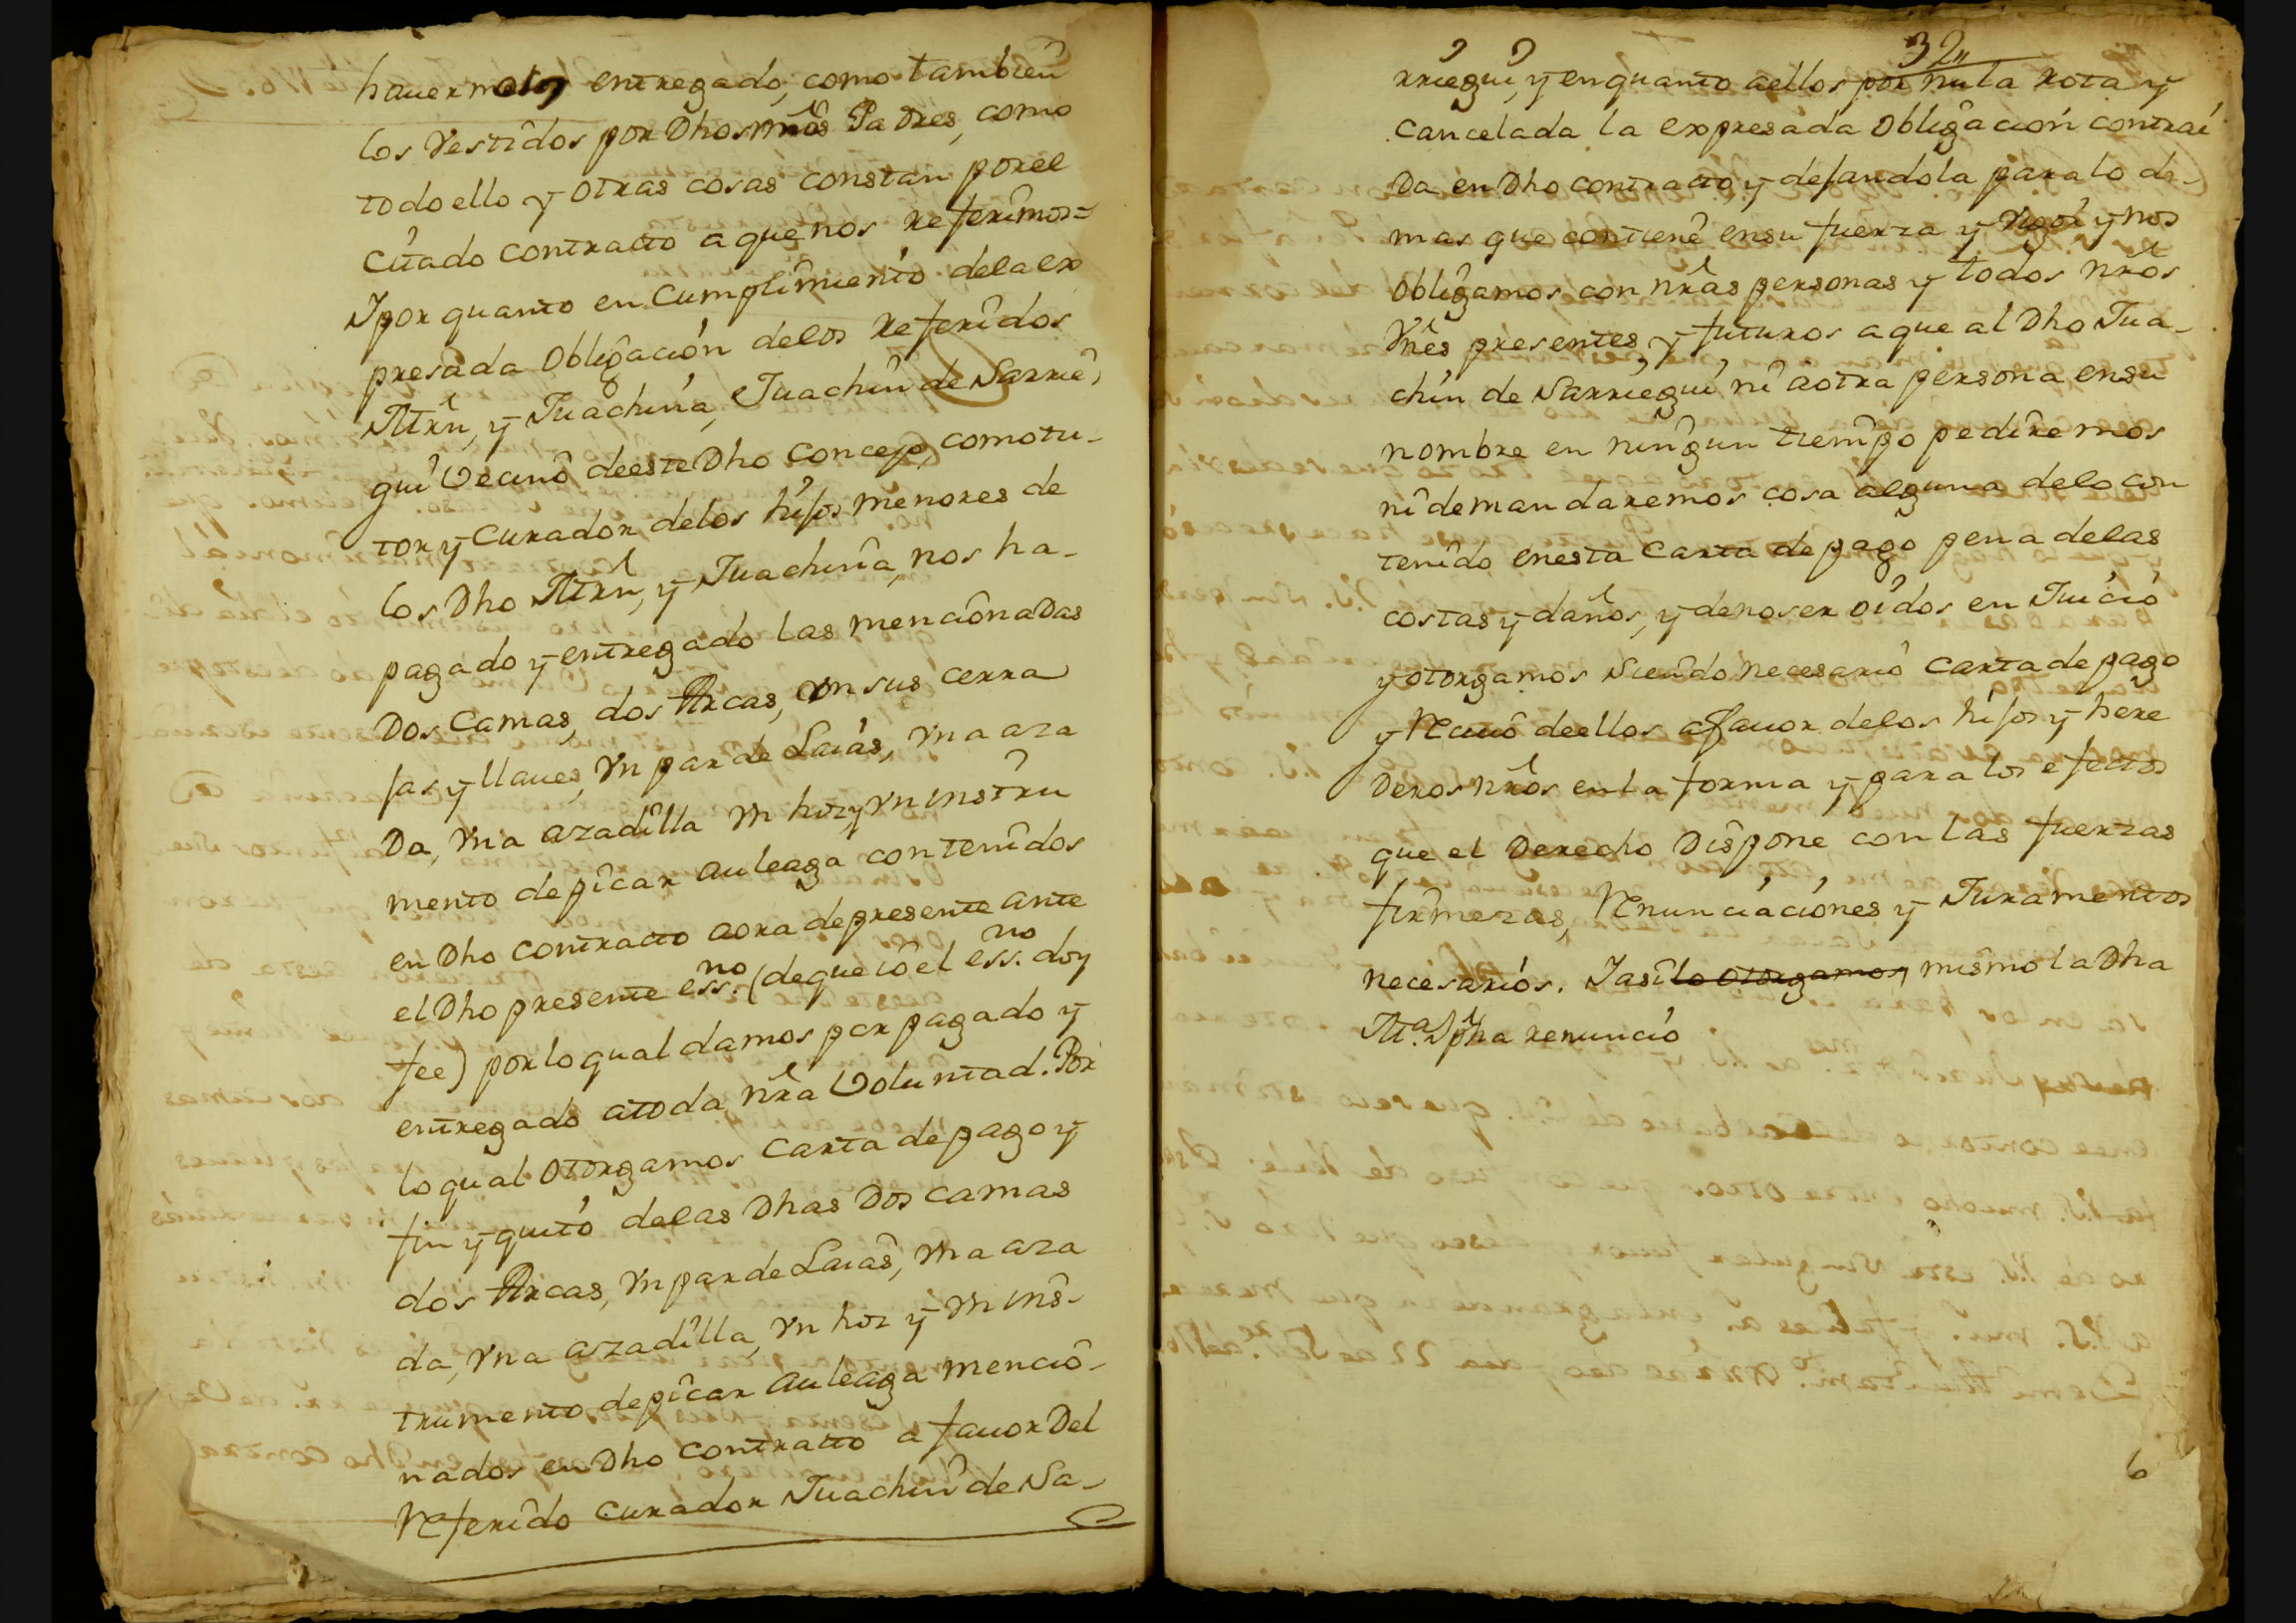 hauermelos entregado, como tambien
los Vestidos por Dhos nr̃os Padres, como
todo ello y otras cosas constan porel
Citado contracto aquenos referimos=
Ypor quanto en Cumplimiento dela ex
presada Obligación delos referidos
Mrn, y Juachina, Juachin de Sarrie,
gui Vecino deeste Dho Concejo, como tu-
tor y Curador delos hijos menores de
los Dho Mrn, y Juachina, nos ha-
pagado y entregado las mencionadas
Dos Camas, dos Arcas, con sus cerra
jas y llaues, Vn par de Laias, Vna aza
Da, Vna azadilla Vn hoz y Vn instru
mento de picar auleaga contenidos
en Dho contracto aora depresente ante
el Dho presente ess.no (deque io el ess.no doy
fee) por lo qual damos por pagado y
entregado atoda nr̃a Voluntad. Por
lo qual Otorgamos Carta de pago y
fin y quito delas Dhas Dos Camas
dos Arcas, Vn par de Laias, Vna aza
da, Vna azadilla, Vn hoz y Vn ins-
trumento de picar auleaga mencio-
nados en Dho Contracto a fauor Del
Referido Curador Juachin de Sa-
32
rriegui, y enquanto aellos por nula rota y
cancelada la expresada Obligacion contrai
Da en Dho contracto y dejandola para lo de-
mas que contiene ensu fuerza y Vigor y nos
Obligamos con nr̃as personas y todos nr̃os
Vñes presentes, y futuros aque al Dho Jua-
chin de Sarriegui ni aotra persona ensu
nombre en ningun tiempo pediremos
ni demandaremos cosa alguna delo con
tenido enesta Carta de pago pena delas
costas y daños, y denoser oidos en Juicio
y otorgamos Siendo necesario Carta de pago
y Reciuo deellos afauor delos hijos y here
Deros nr̃os enla forma y para los efectos
que el Derecho Dispone con las fuerzas
firmezas, Renunciaciones y Juramentos
necesarios. Yasi lo otorgamos, mismo la Dha
Ma. Jpha renuncio
6